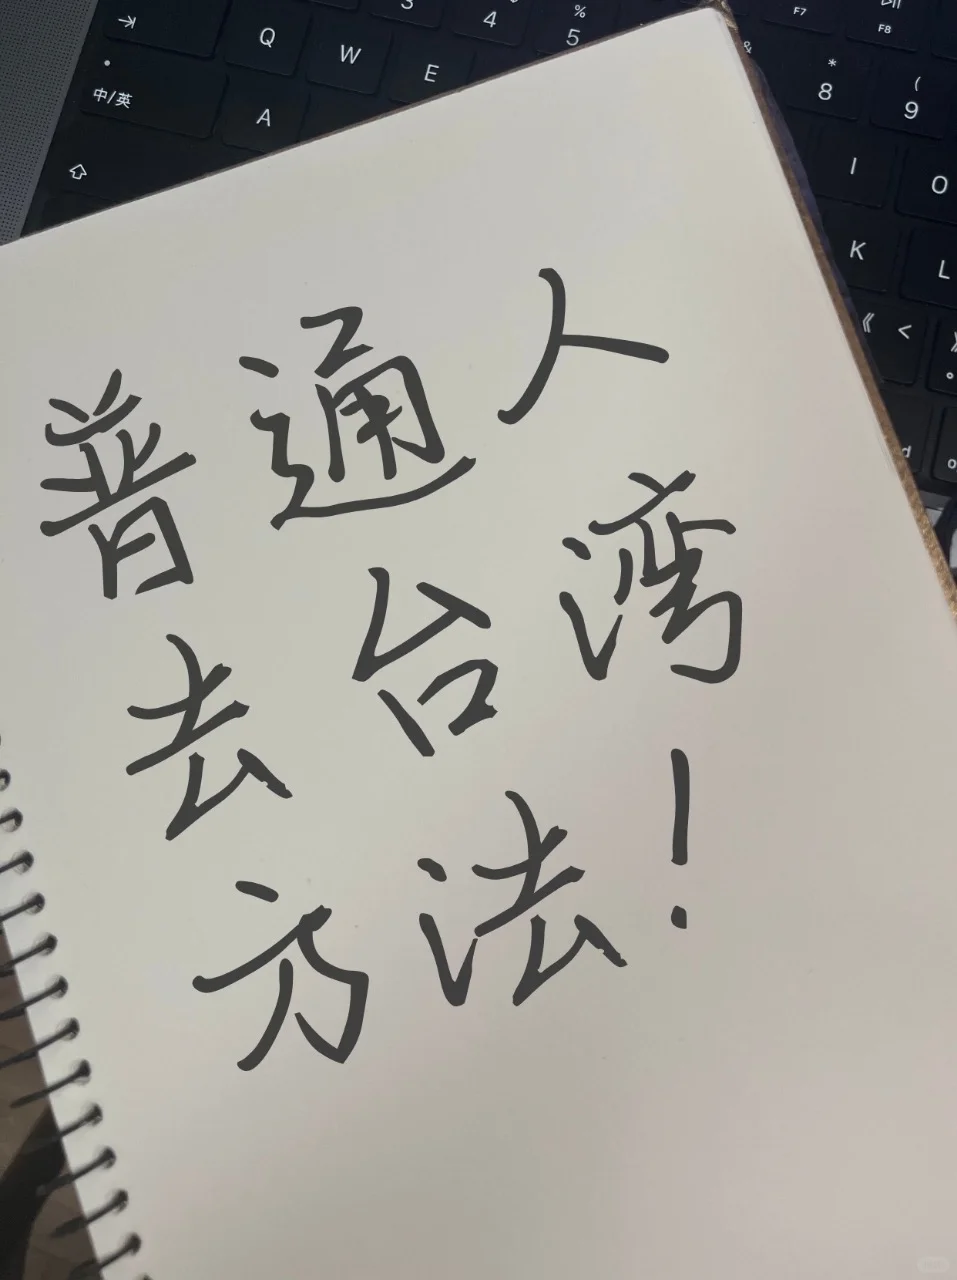 ⇥ Q W E 3 4 % 5 & F7 F8
中/英 A * 8 ( 9
I O
K L
《 <
普通人
去台湾
方法！